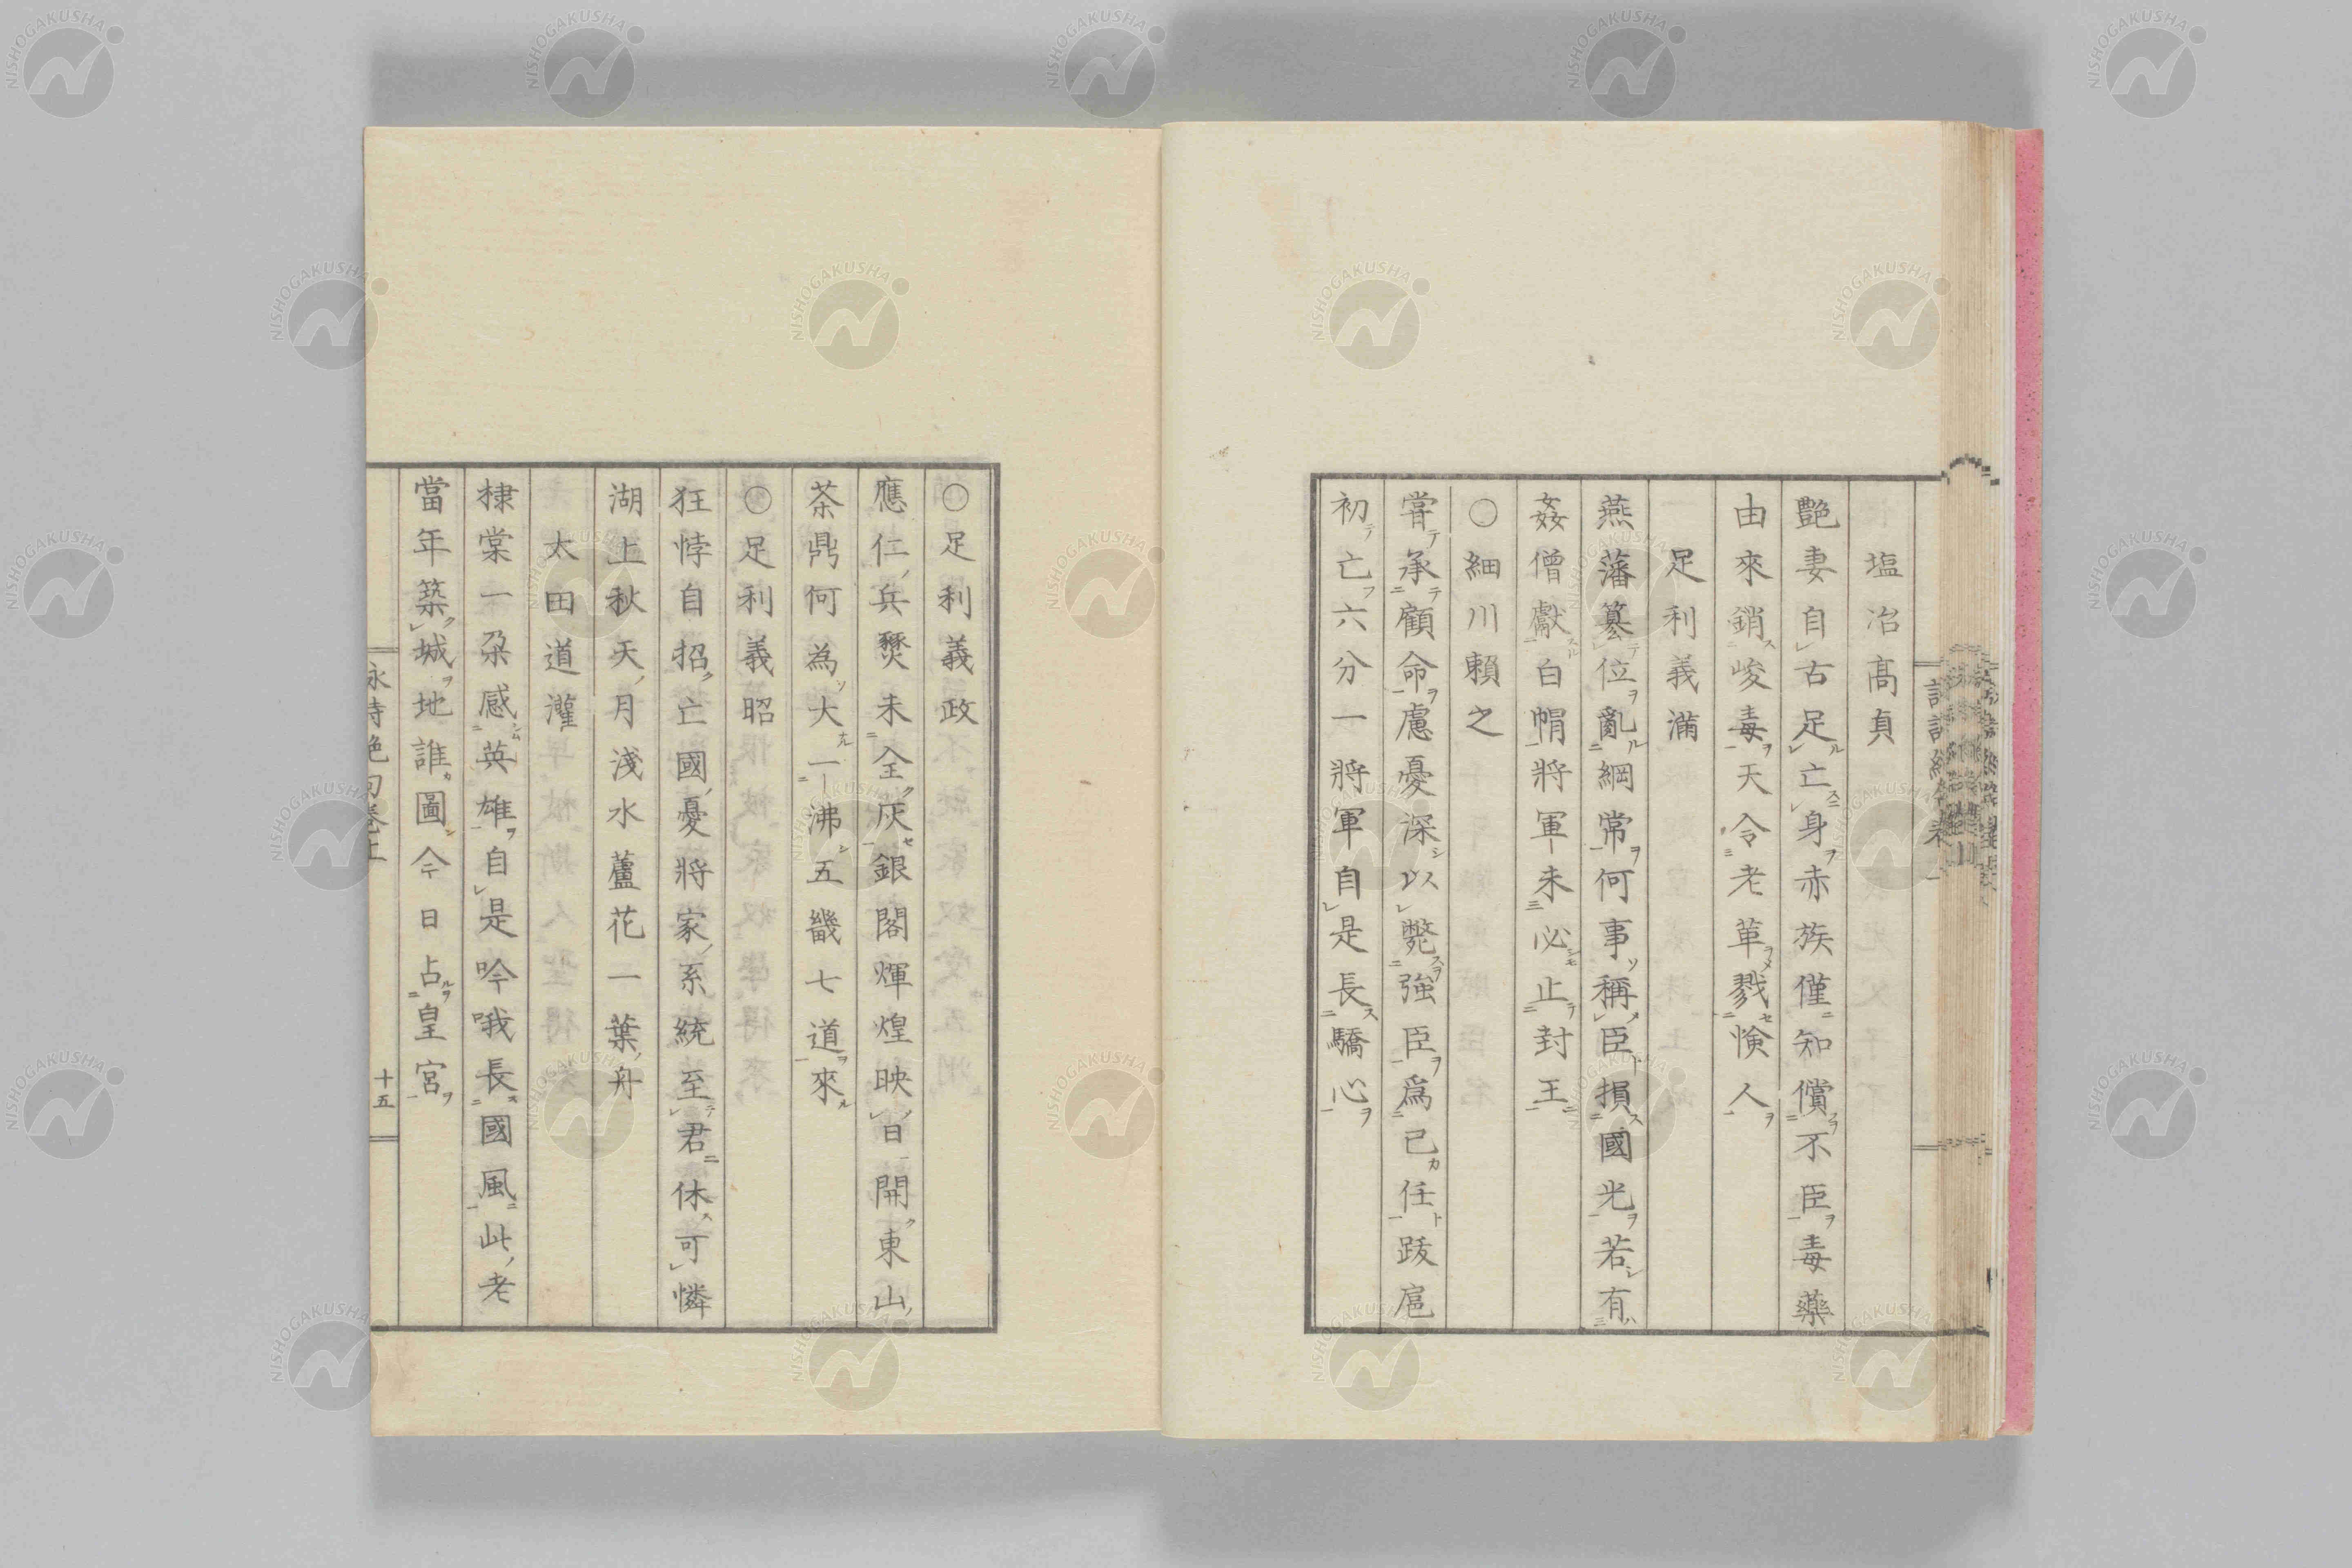 塩冶髙貞
艶妻自古足亡身赤族僅知償不臣毒藥
由來銷峻毒天令老革戮憸人
足利義滿
燕藩簒位亂綱常何事稱臣損國光若有
姦僧獻白帽將軍未必止封王
○細川賴之
嘗承顧命慮憂深以斃強臣爲己任跋扈
初亡六分一將軍自是長驕心
○足利義政
應仁兵燹未全灰銀閣輝煌映日開東山
茶鼎何為大一沸五畿七道來
○足利義昭
狂悖自招亡國憂將家系統至君休可憐
湖上秋天月淺水蘆花一葉舟
太田道灌
棣棠一朶感英雄自是吟哦長國風此老
當年築城地誰圖今日占皇宮
永詩絶句卷上
十五